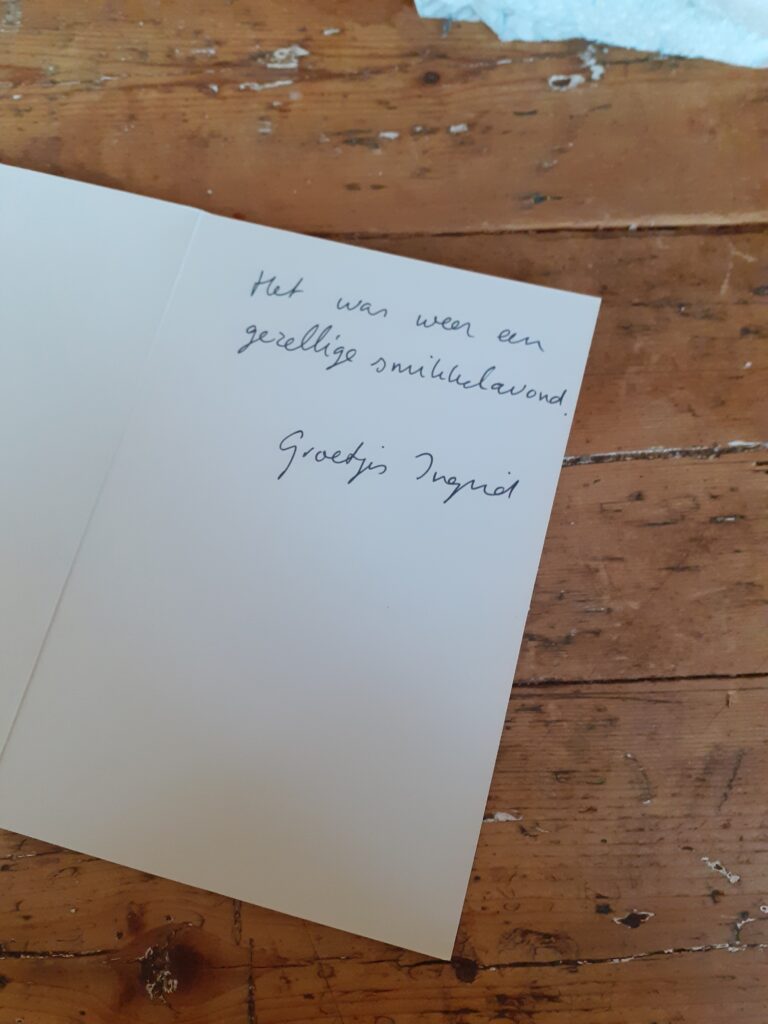 Het was weer een
gezellige smikkelavond.
Groetjes Ingrid